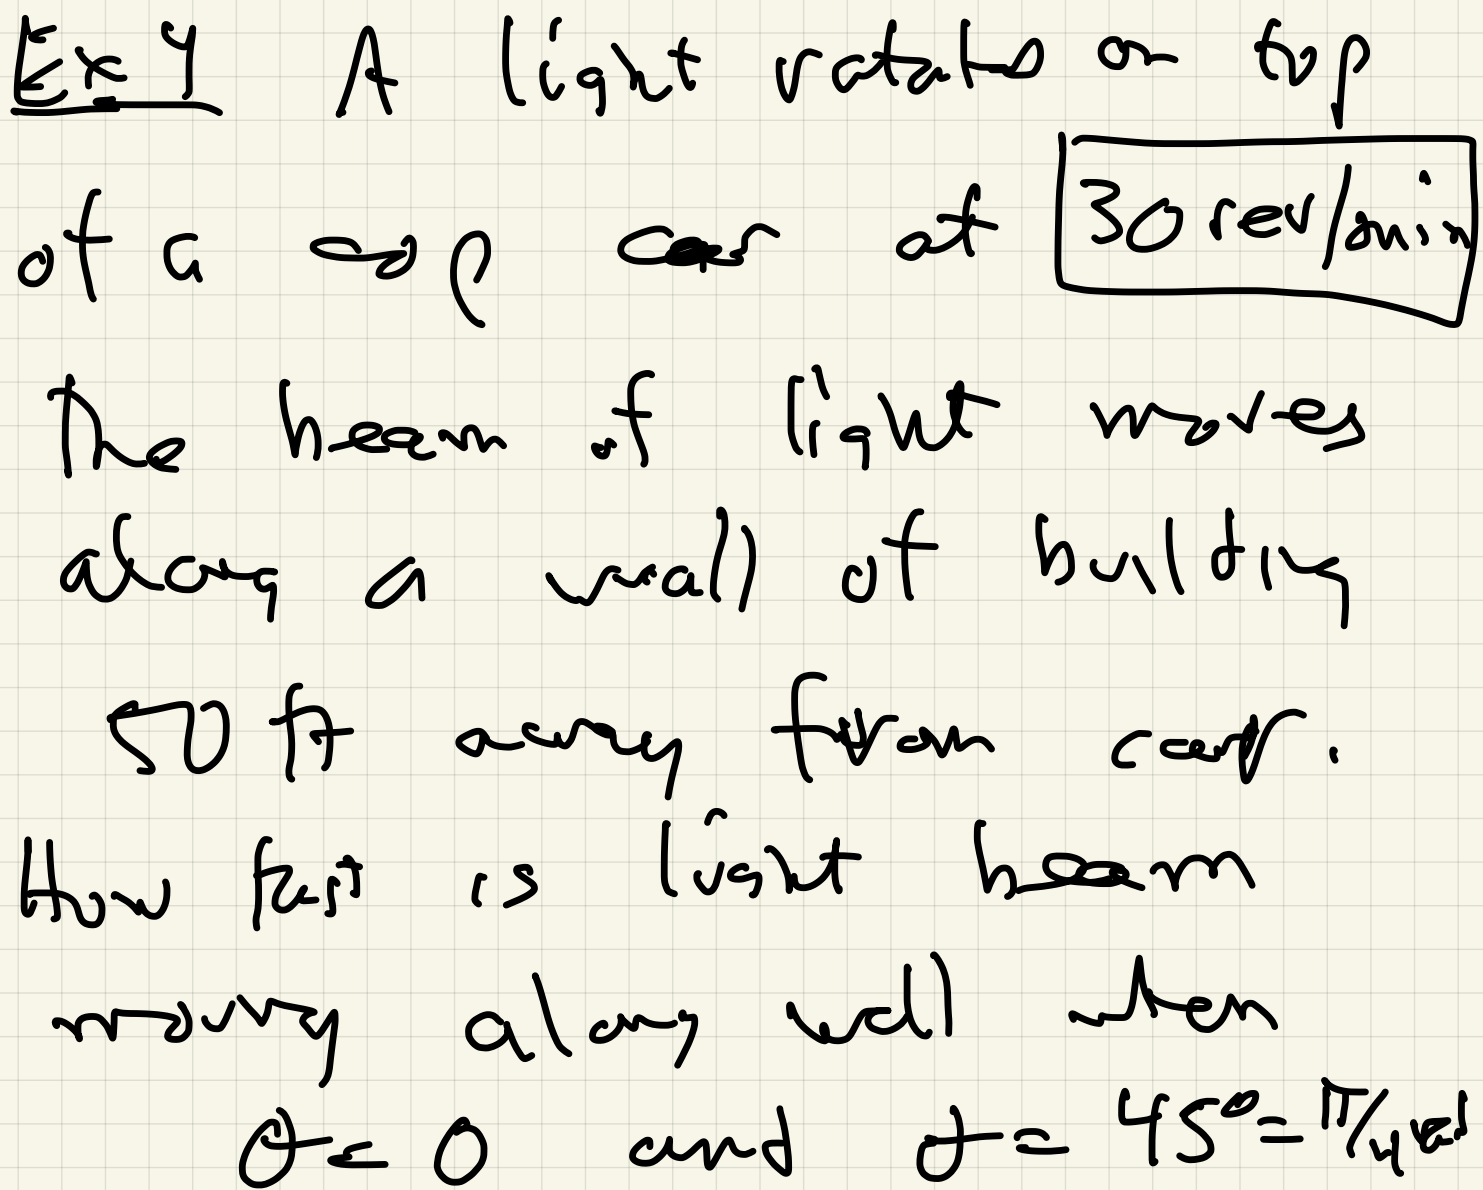 Ex 4 A light rotates on top
of a cop car at 30 rev/min
The beam of light moves
along a wall of building
50 ft away from car.
How fast is light beam
moving along wall when
θ = 0 and θ = 45° = π/4 rad